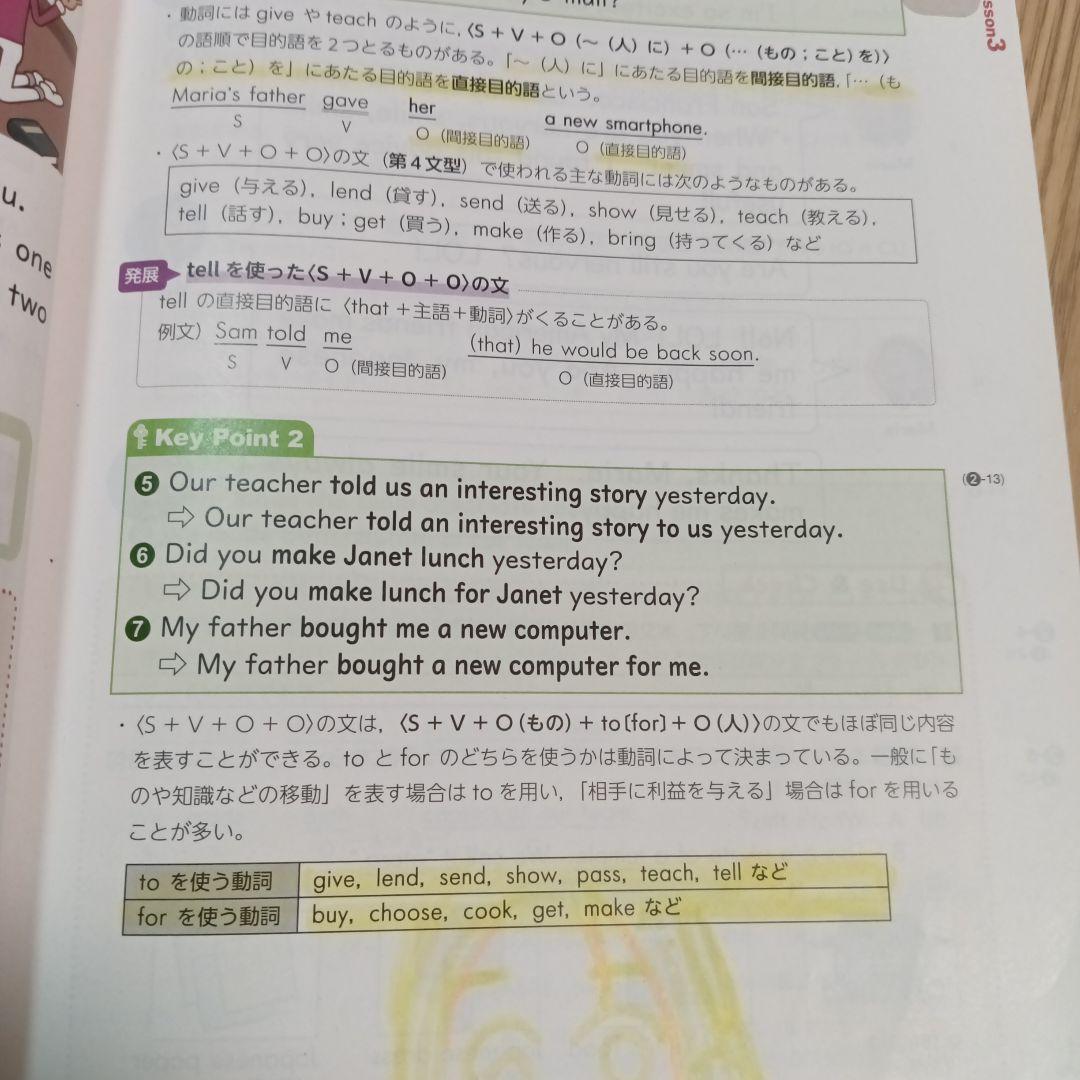 sson3
u.
one
two
・動詞には give や teach のように，〈S + V + O（～（人）に）+ O（…（もの；こと）を）〉
の語順で目的語を２つとるものがある。「～（人）に」にあたる目的語を間接目的語，「…（も
の；こと）を」にあたる目的語を直接目的語という。
Maria's father gave her a new smartphone.
S V O（間接目的語） O（直接目的語）
・〈S + V + O + O〉の文（第４文型）で使われる主な動詞には次のようなものがある。
give（与える），lend（貸す），send（送る），show（見せる），teach（教える），
tell（話す），buy；get（買う），make（作る），bring（持ってくる）など
発展 tell を使った〈S + V + O + O〉の文
tell の直接目的語に〈that＋主語＋動詞〉がくることがある。
例文）Sam told me (that) he would be back soon.
S V O（間接目的語） O（直接目的語）
Key Point 2
❺ Our teacher told us an interesting story yesterday.
(❷-13)
⇨ Our teacher told an interesting story to us yesterday.
❻ Did you make Janet lunch yesterday?
⇨ Did you make lunch for Janet yesterday?
❼ My father bought me a new computer.
⇨ My father bought a new computer for me.
・〈S + V + O + O〉の文は，〈S + V + O（もの）+ to〔for〕+ O（人）〉の文でもほぼ同じ内容
を表すことができる。to と for のどちらを使うかは動詞によって決まっている。一般に「も
のや知識などの移動」を表す場合は to を用い，「相手に利益を与える」場合は for を用いる
ことが多い。
to を使う動詞 give, lend, send, show, pass, teach, tell など
for を使う動詞 buy, choose, cook, get, make など